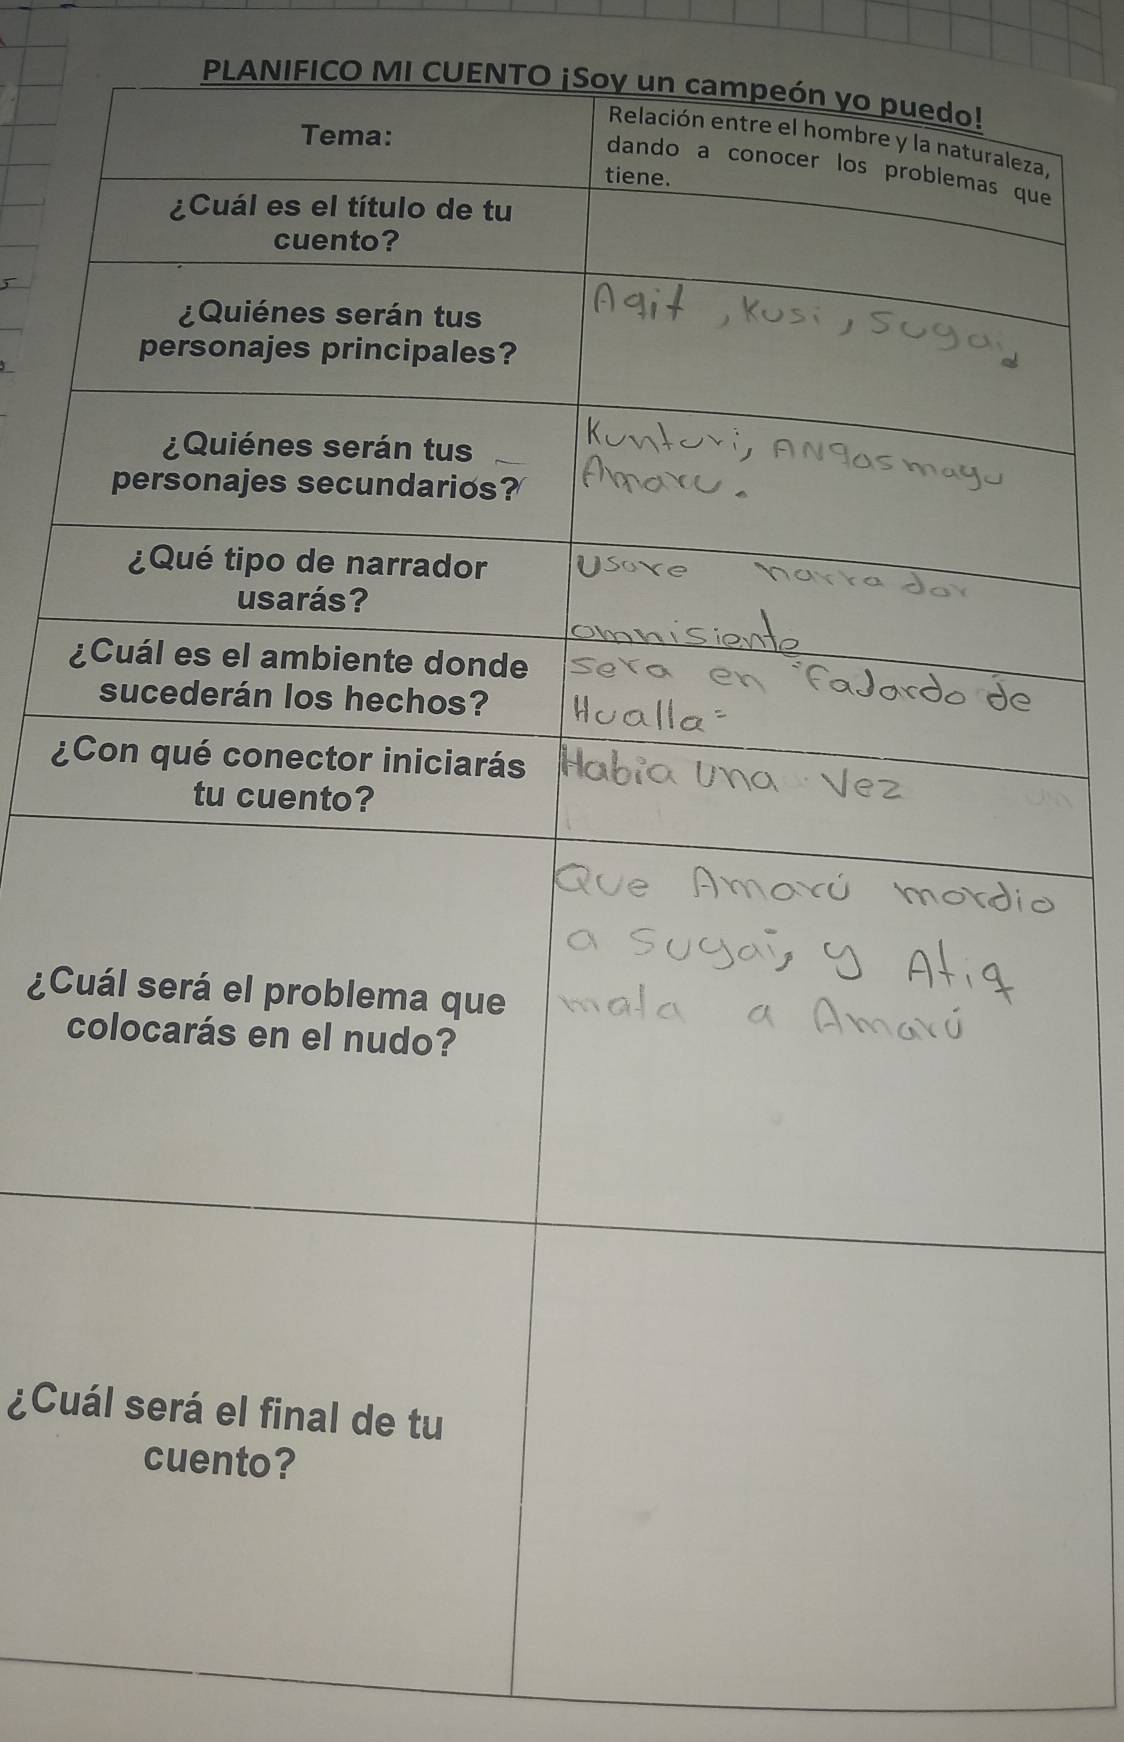 PLANIFICO MI CUENTO ¡Soy un campeón yo puedo!
Tema:
Relación entre el hombre y la naturaleza,
dando a conocer los problemas que
tiene.
¿Cuál es el título de tu
cuento?
¿Quiénes serán tus
personajes principales?
Aqit, Kusi, Sugai,
¿Quiénes serán tus
personajes secundarios?
Kunturi, ANqasmayu
Amaru.
¿Qué tipo de narrador
usarás?
Usare narrador
omnisiente
¿Cuál es el ambiente donde
sucederán los hechos?
sera en Fajardo de
Hualla=
¿Con qué conector iniciarás
tu cuento?
Habia una vez
¿Cuál será el problema que
colocarás en el nudo?
Que Amarú mordio
a sugai, y Atiq
mata a Amarú
¿Cuál será el final de tu
cuento?